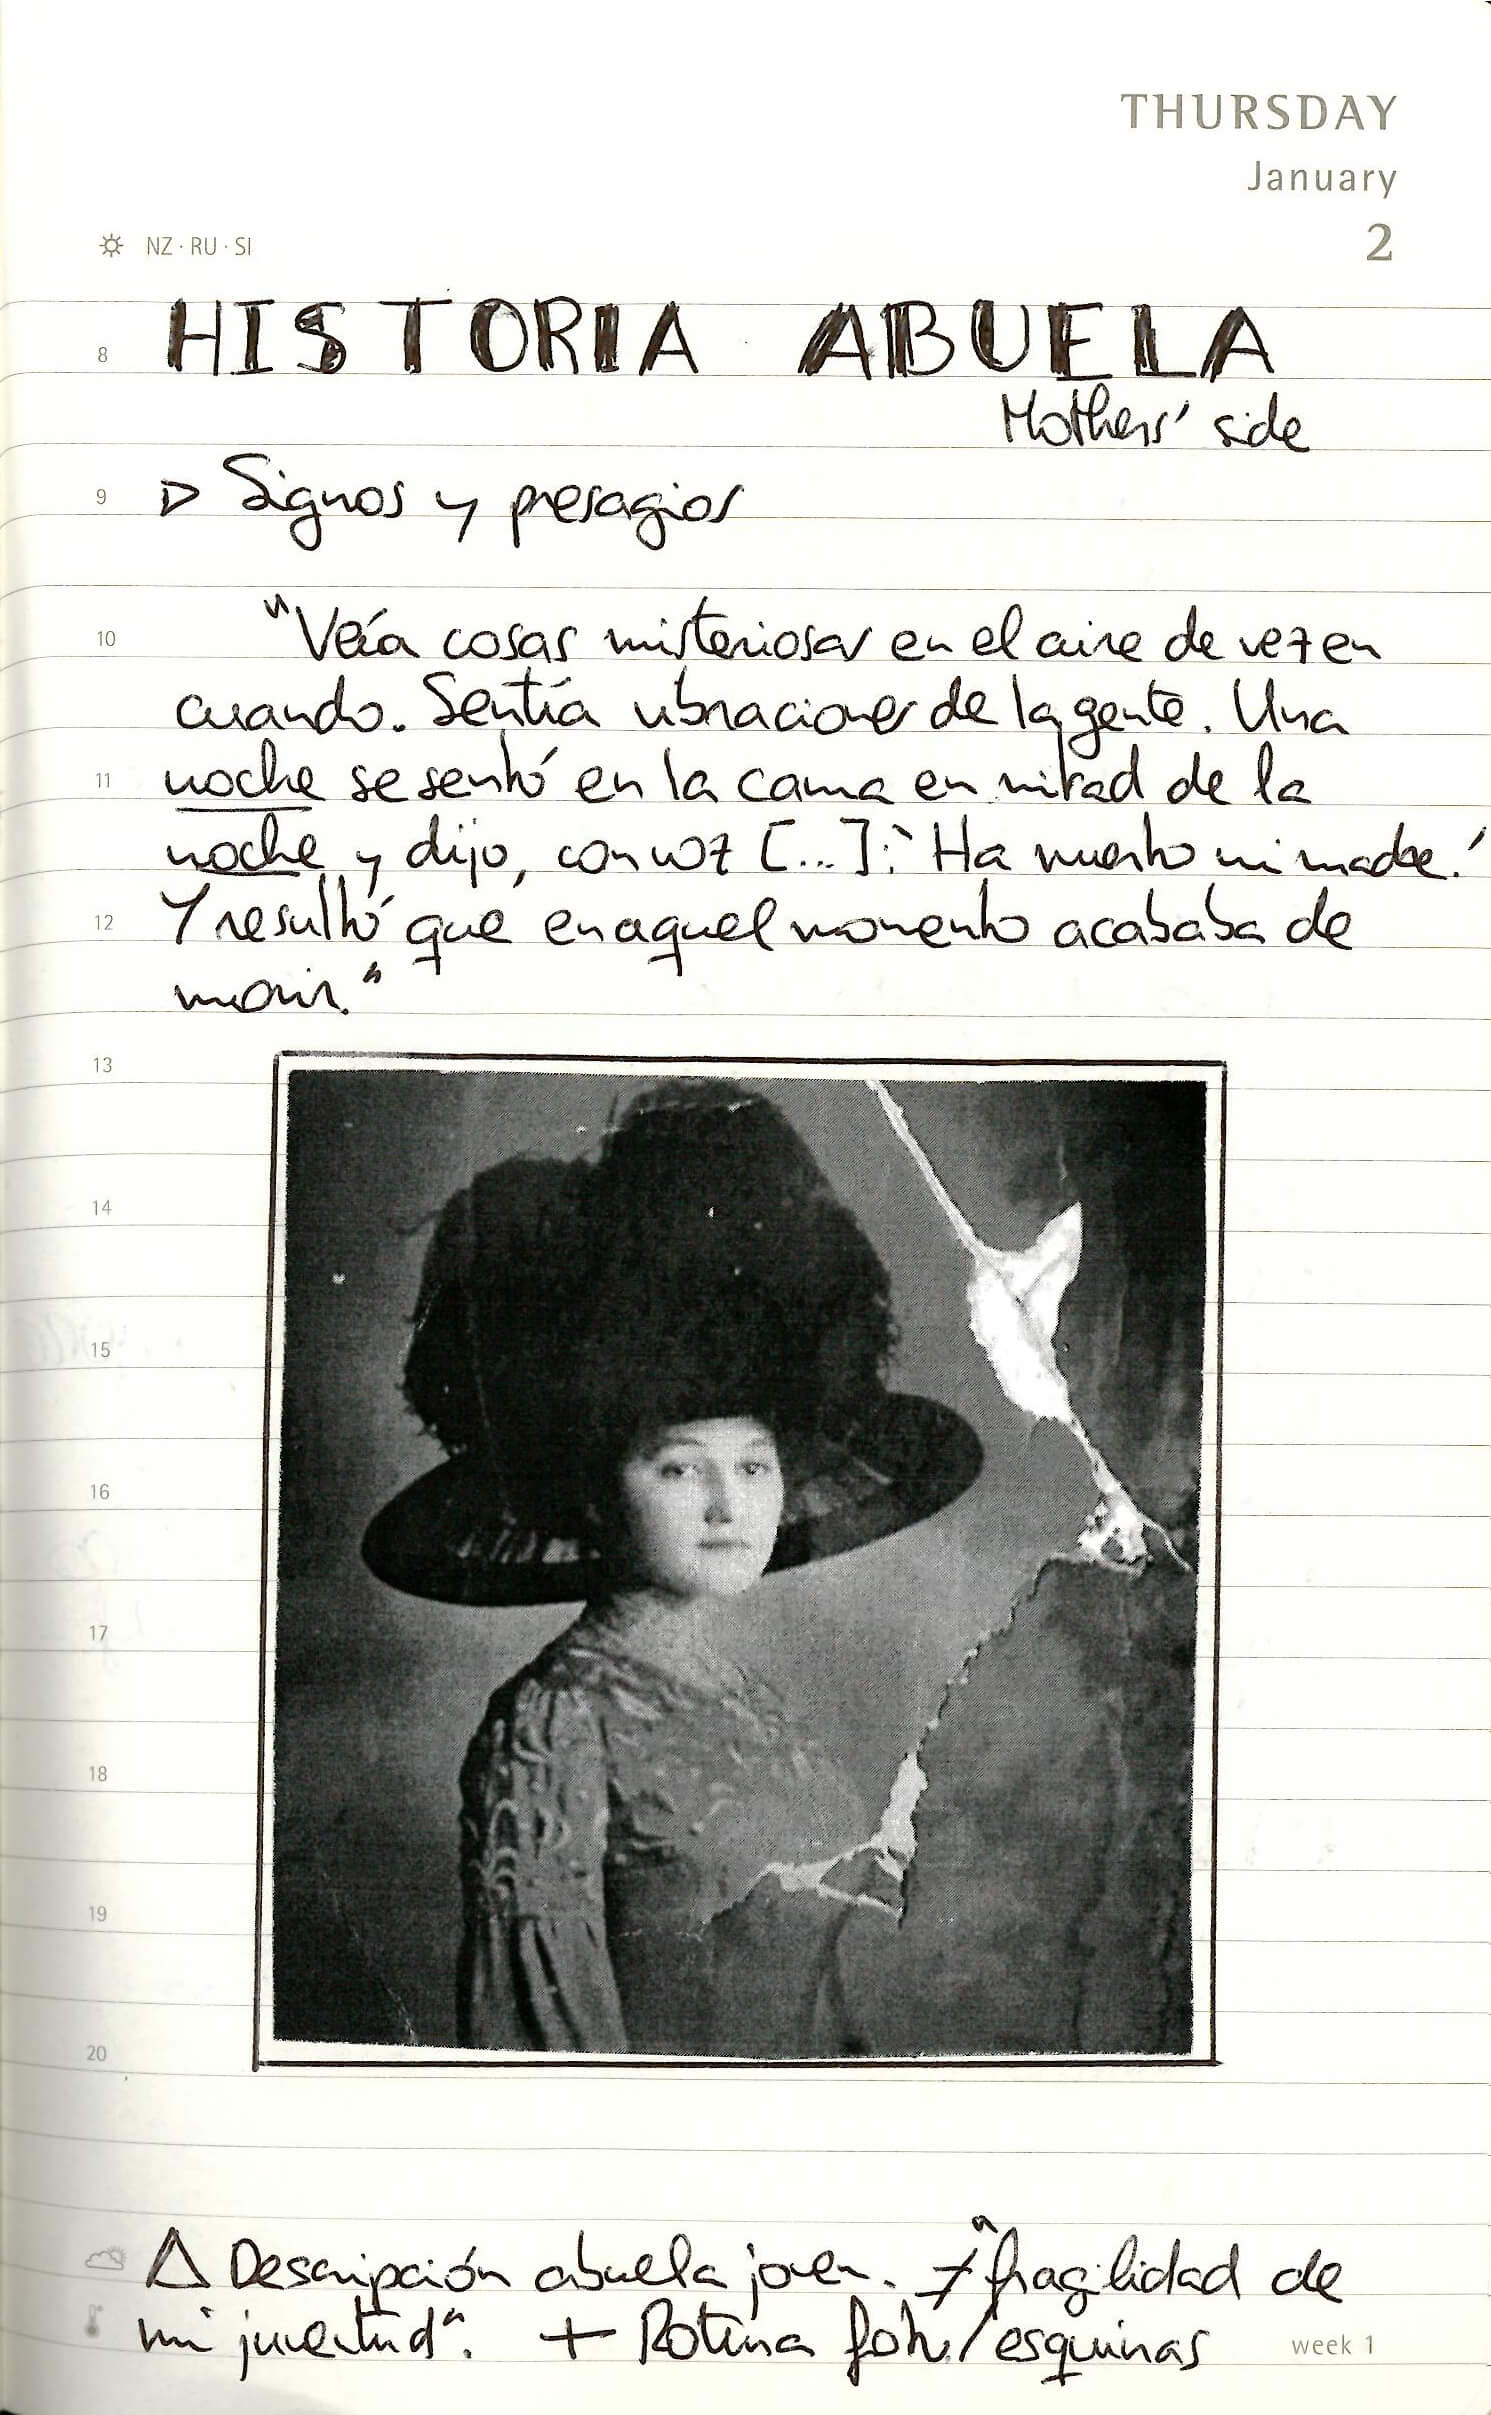 THURSDAY
January
2
NZ · RU · SI
HISTORIA ABUELA
8
Mothers' side
9
▷ Signos y presagios
10
"Veía cosas misteriosas en el aire de vez en
cuando. Sentía vibraciones de la gente. Una
11
noche se sentó en la cama en mitad de la
noche y dijo, con voz [...]: 'Ha muerto mi madre.'
12
Y resultó que en aquel momento acababa de
morir."
13
14
15
16
17
18
19
20
△ Descripción abuela joven. ≠ "fragilidad de
mi juventud". + Rotura foto/esquinas
week 1